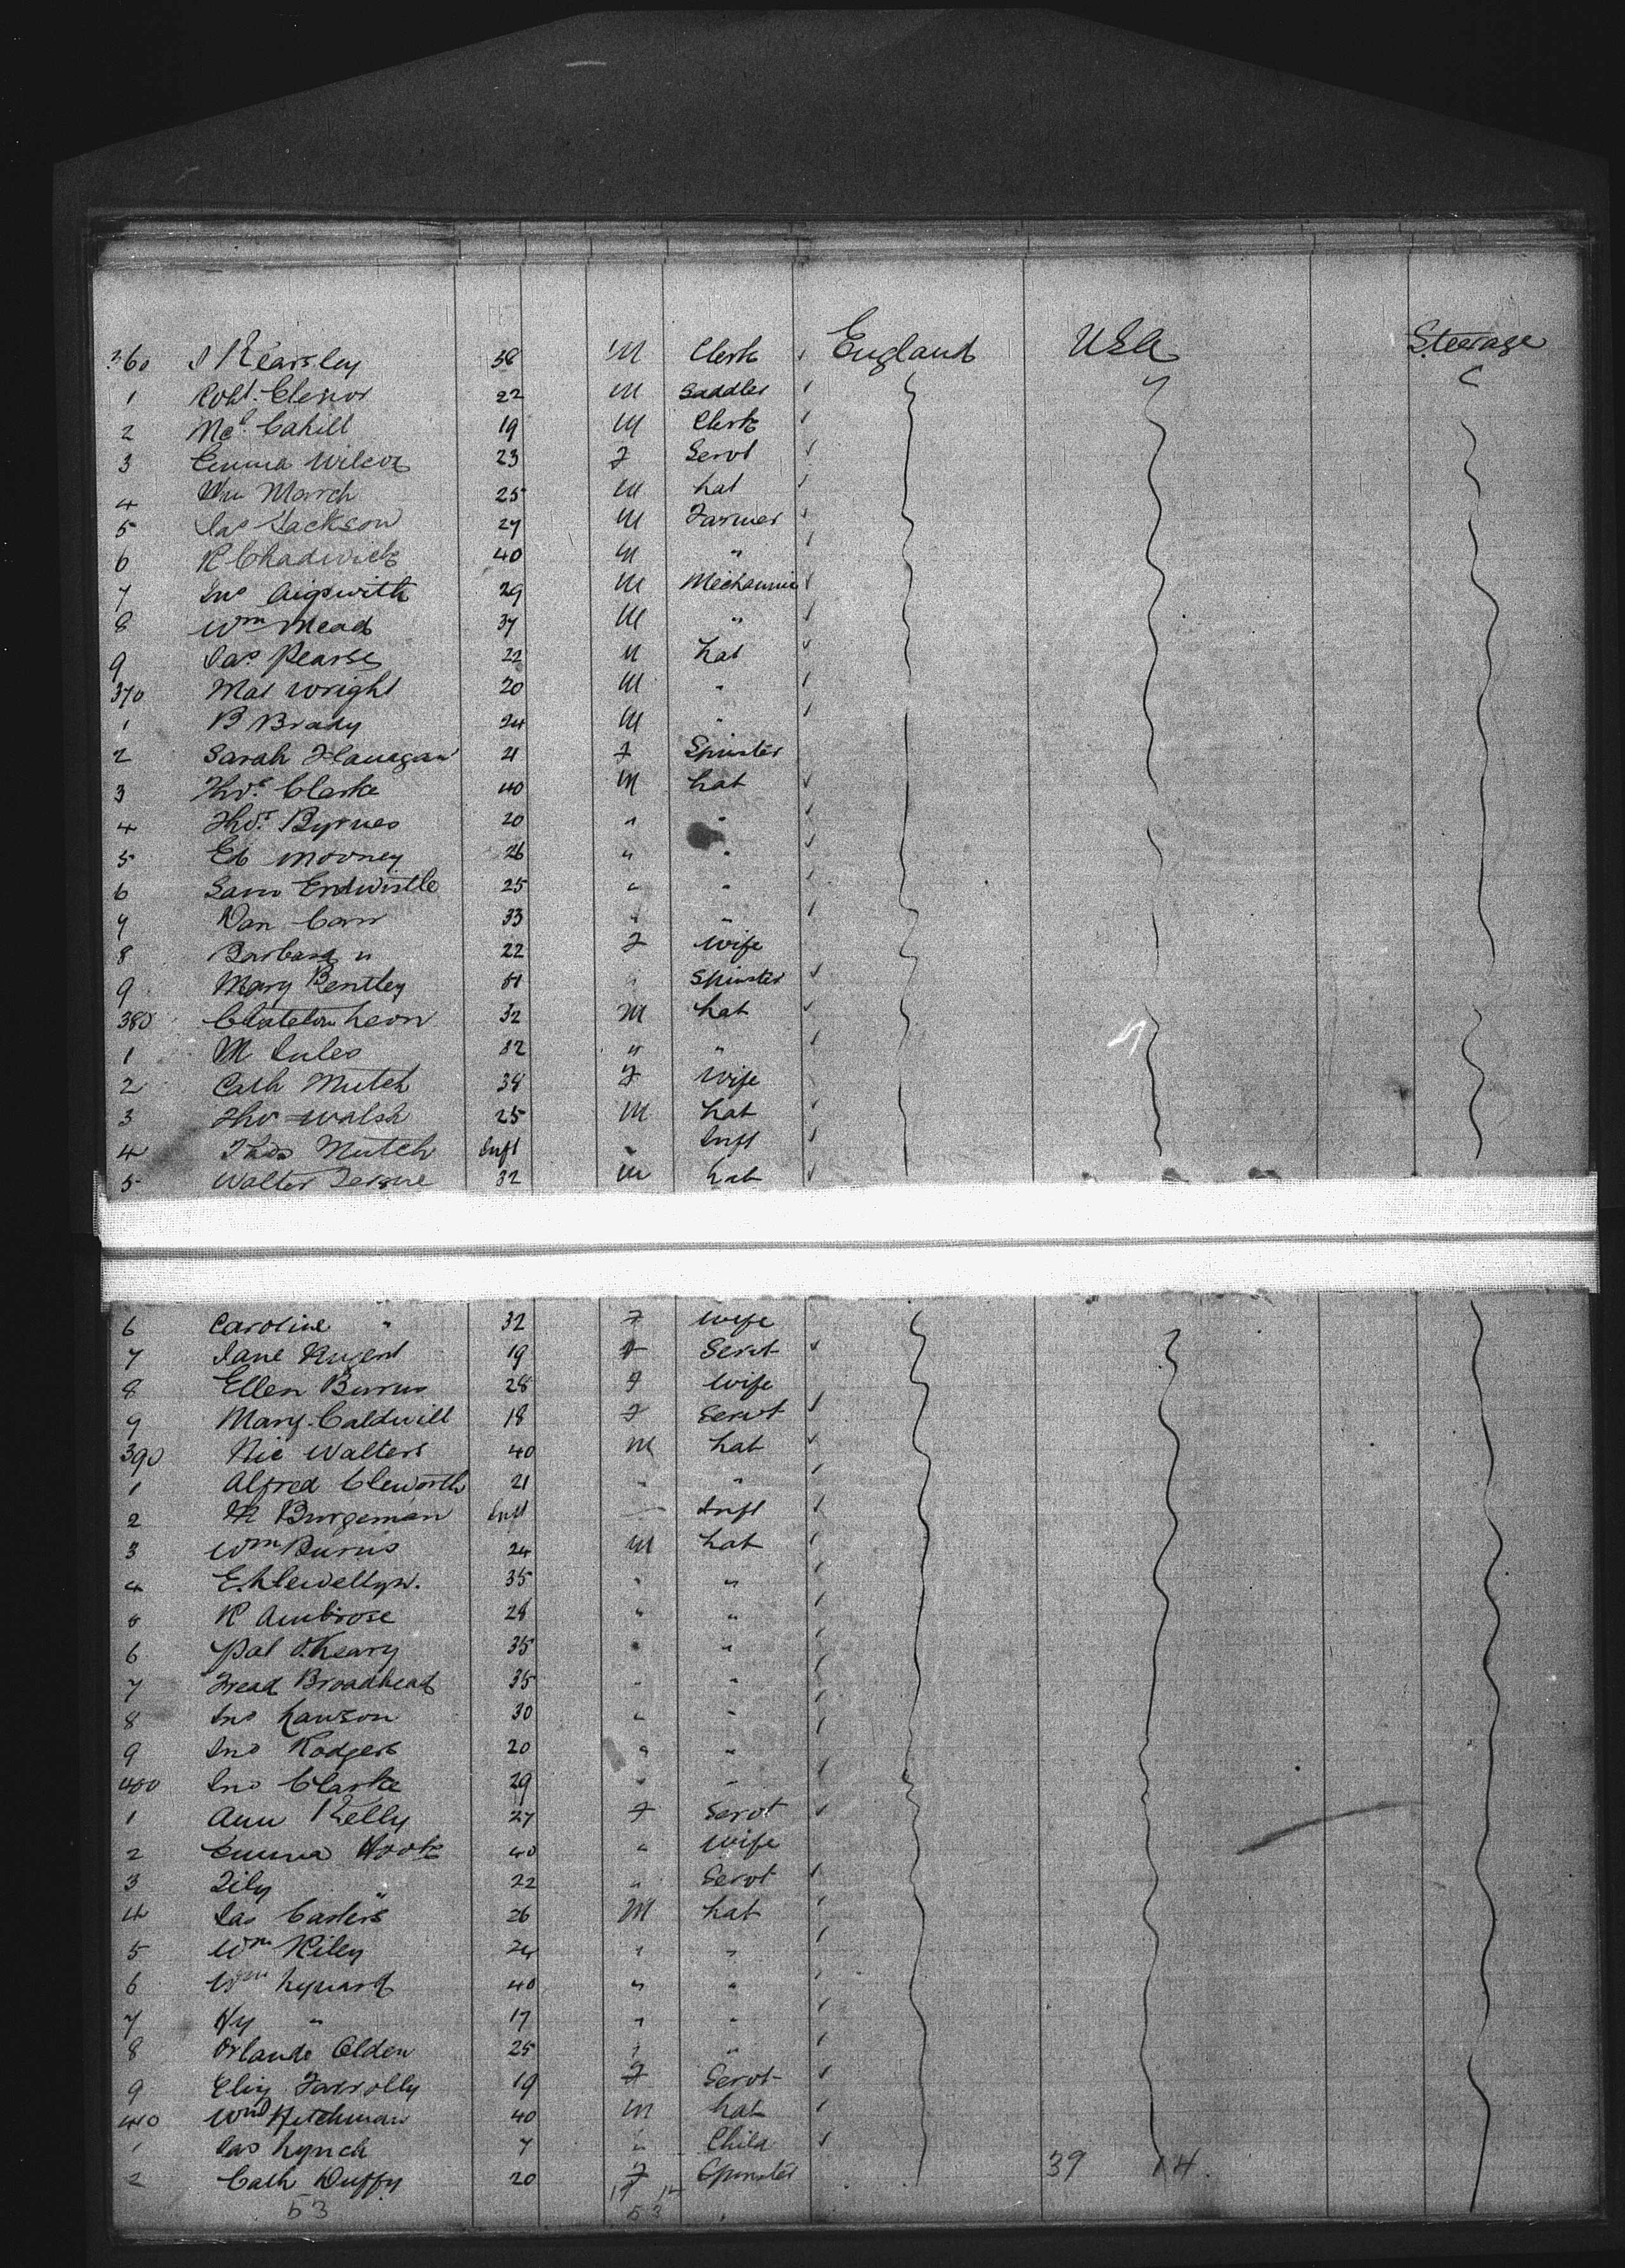 360 J Kearsley 38 M Clerk England USA Steerage
1 Robt. Elenor 22 M Saddler
2 Mcl. Cahill 19 M Clerk
3 Emma Wilcox 23 F Servt
4 Wm March 25 M Lab
5 Jas Jackson 27 M Farmer
6 R Chadwick 40 M "
7 Jno 29 M Mechanic
8 Wm Mead 37 M "
9 Jas Pearse 22 M Lab
370 Mat Wright 20 M "
1 B Brady 24 M "
2 Sarah Flanagan 21 F Spinster
3 Thos Clarke 40 M Lab
4 Thos Byrnes 20 " "
5 Ed Mooney 26 " "
6 Sam Entwistle 25 " "
7 Dan Carr 33 " "
8 Barbara " 22 F Wife
9 Mary Bentley " Spinster
380 Leon 32 M Lab
1 M Jules 32 " "
2 Cath Mutch 38 F Wife
3 Tho Walsh 25 M Lab
4 Mutch Inft " Inft
5 Walter 32 M Lab
6 Caroline " 32 F Wife
7 Jane Nugent 19 F Servt
8 Ellen Burns 28 F Wife
9 Mary Caldwill 18 F Servt
390 Nic Walters 40 M Lab
1 Alfred Cleworth 21 " "
2 Burgeman Inft " Inft
3 Wm Burns 24 M Lab
4 E. Llewellyn. 35 " "
5 R Ambrose 28 " "
6 Pat O'Keary 35 " "
7 Fread Broadhead 35 " "
8 Jno Lawson 30 " "
9 Jno Rodgers 20 " "
400 Jno Clarke 29 " "
1 Ann Kelly 27 F Servt
2 Emma Hook 40 " Wife
3 Lily " 22 " Servt
4 Jas Carters 26 M Lab
5 Wm Riley 24 " "
6 Wm Lynard 40 " "
7 Hy " 17 " "
8 Orlando Olden 25 " "
9 Eliz Farrolly 19 F Servt
410 Wm Hitchman 40 M Lab
1 Jas Lynch 7 " Child
2 Cath Duffy 20 F Spinster 39 14
53 53